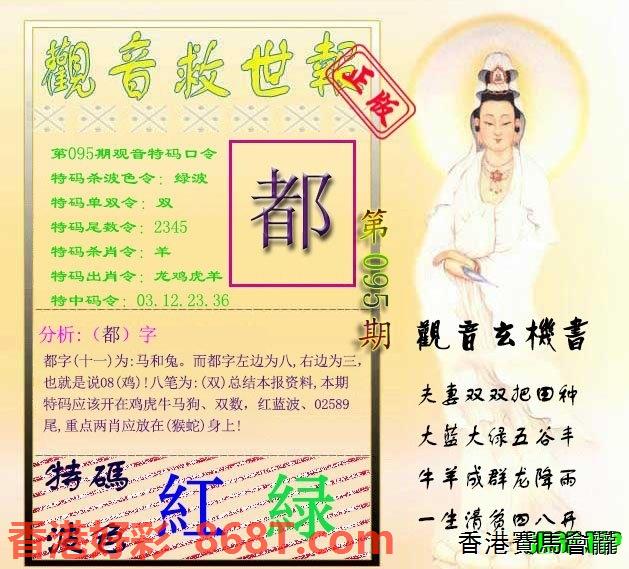 觀音救世報
正版
第095期观音特码口令
特码杀波色令：绿波
特码单双令：双
特码尾数令：2345
特码杀肖令：羊
特码出肖令：龙鸡虎羊
特中码令：03.12.23.36
都
第095期
分析:（都）字
都字(十一)为:马和兔。而都字左边为八,右边为三,
也就是说08(鸡)!八笔为:(双)总结本报资料,本期
特码应该开在鸡虎牛马狗、双数，红蓝波、02589
尾,重点两肖应放在(猴蛇)身上!
觀音玄機書
夫妻双双把田种
大蓝大绿五谷丰
牛羊成群龙降雨
一生清贫四八开
特碼
波色
紅
绿
香港好彩 868T.com
香港賽馬會